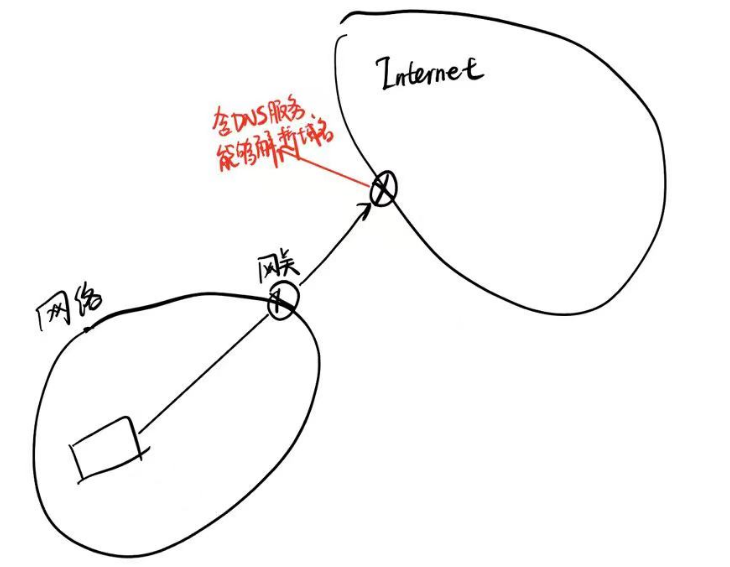 Internet
含DNS服务,
能够解析域名
网关
网络